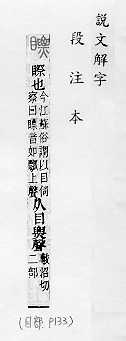 說文解字
段注本
也今江蘇俗謂以目伺
察曰瞟音如飄上聲从目㶾聲敷沼切
二部
(目部 P133)